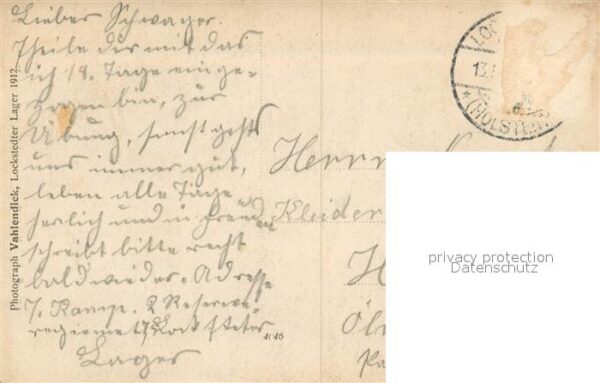 Lieber Schwager.
Theile dir mit das
ich 14. Tage einge-
zogen bin, zur
Übung, sonst gehts
uns immer gut,
leben alle Tage
herlich und in Freuden
schreibt bitte recht
bald wieder. Adresse
7. Komp. 2 Reserve-
regiement Locksteter
Lager
4146
Photograph Vahlendick, Lockstedter Lager 1912.
LOC
13.
* (HOLSTEIN)
Herrn
Kleider
H
privacy protection
Datenschutz